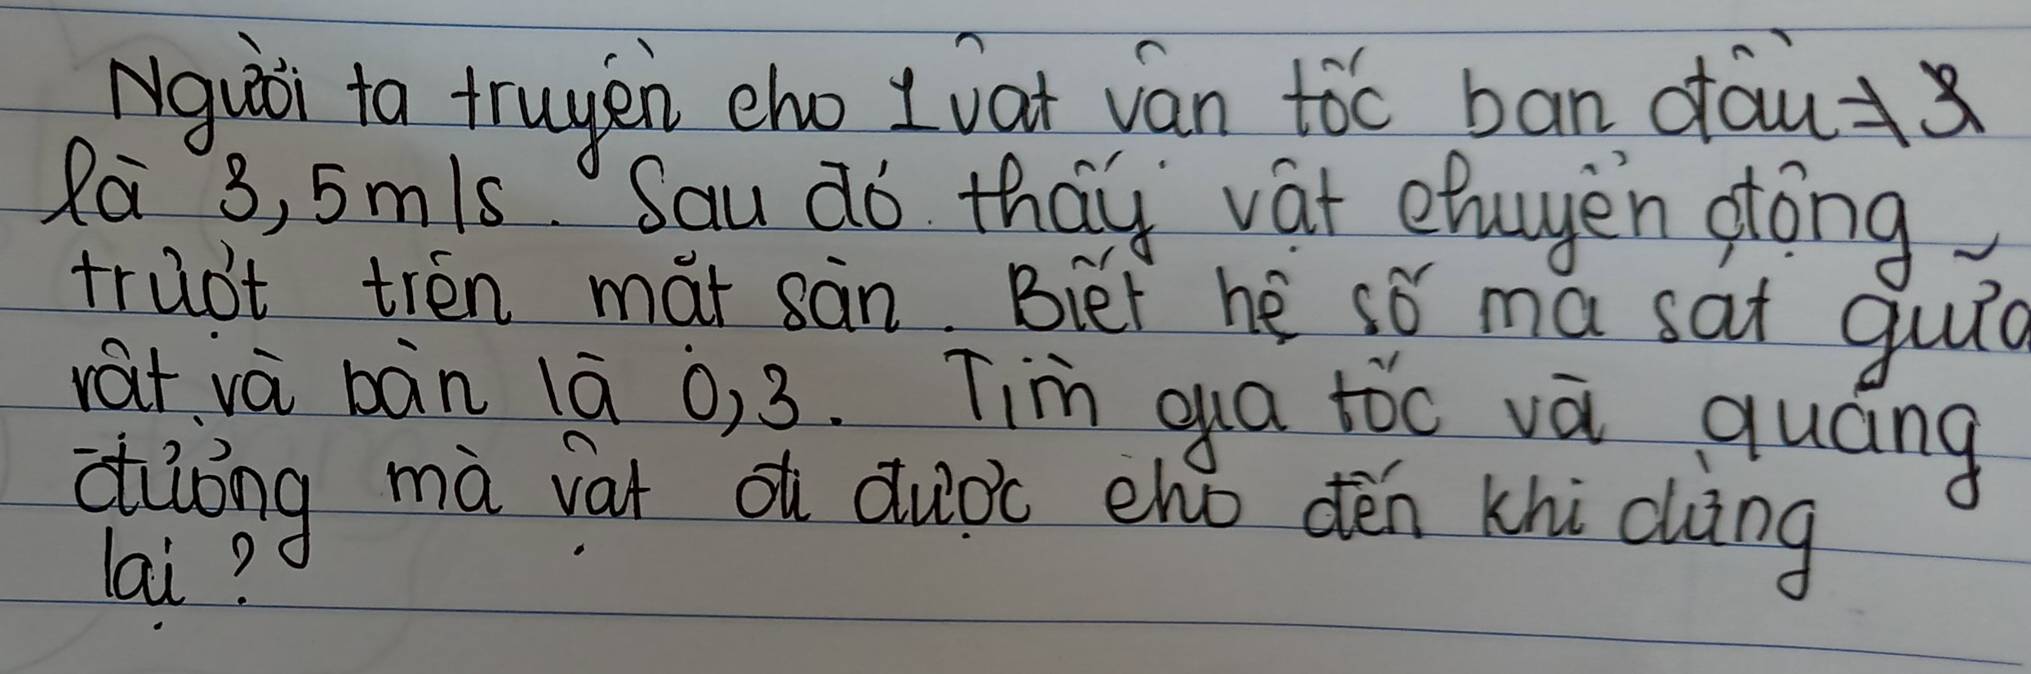 Người ta truyền cho 1 vật vận tốc ban đầu
là 3,5 m/s. Sau đó thấy vật chuyển động
trượt trên mặt sàn. Biết hệ số ma sát giữa
vật và bàn là 0,3. Tìm gia tốc và quãng
đường mà vật đi được cho đến khi dừng
lại?